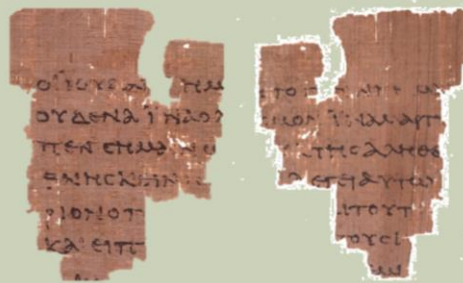 ΟΙ ΙΟΥΔΑΙ ΗΜ
ΟΥΔΕΝΑ ΙΝΑ Ο Λ
ΠΕΝ ϹΗΜΑΙΝΩ
ΘΝΗϹΚΕΙΝ
ΡΙΟΝ Ο Π
ΚΑΙ ΕΙΠ
ϹΜΟΝ ΙΝΑ ΜΑΡΤΥ
ΤΗϹ ΑΛΗΘΕ
ΛΕΓΕΙ ΑΥΤΩ
ΑΙ ΤΟΥΤ
ΤΟΥϹ Ι